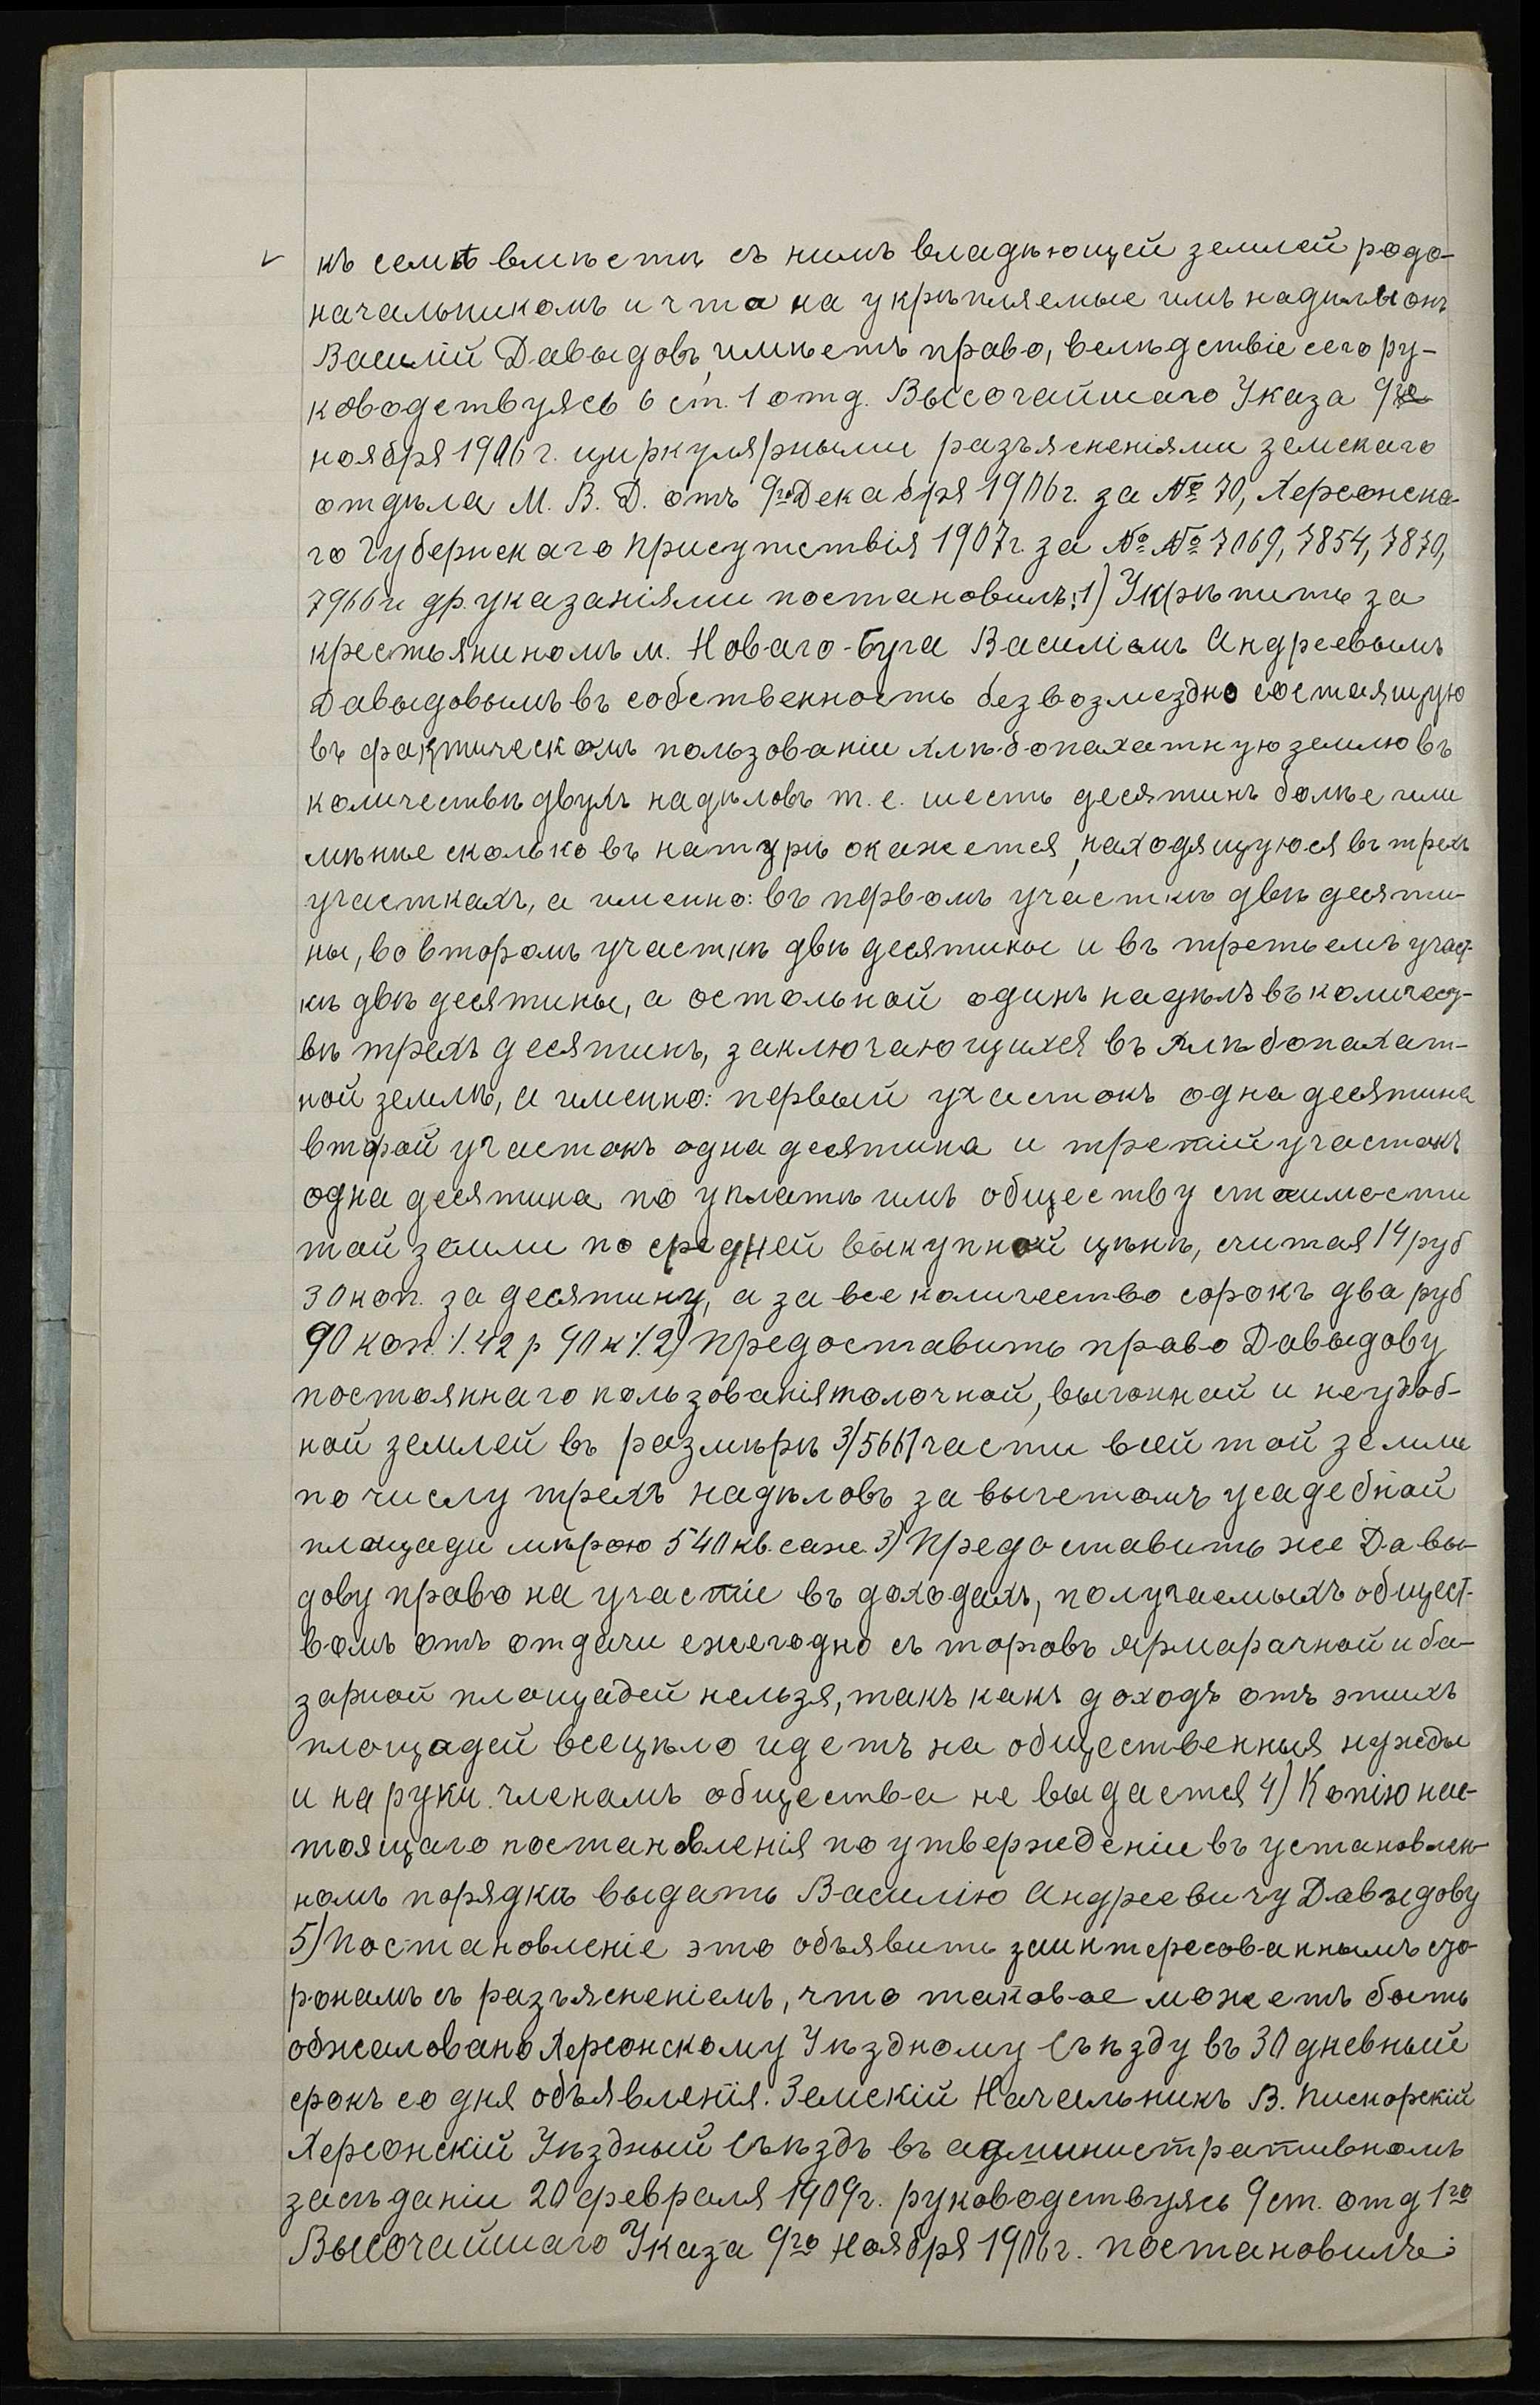 къ семьѣ вмѣстѣ съ нимъ владѣющей землей родо-
начальникомъ и что на укрѣпляемые имъ надѣлы онъ
Василій Давыдовъ, имѣетъ право, вслѣдствіе сего ру-
ководствуясь 6 ст. 1 отд. Высочайшаго Указа 9го
ноября 1906 г. циркулярными разъясненіями земскаго
отдѣла М. В. Д. отъ 9го Декабря 1906 г. за № 70, Херсонска-
го Губернскаго присутствія 1907 г. за №№ 7069, 7854, 7870,
7966 и др. указаніями постановилъ: 1) Укрѣпить за
крестьяниномъ м. Новаго-Буга Василіемъ Андреевымъ
Давыдовымъ въ собственность безвозмездно состоящую
въ фактическомъ пользованіи хлѣбопахатную землю въ
количествѣ двухъ надѣловъ т. е. шесть десятинъ болѣе или
мѣнѣе сколько въ натурѣ окажется, находящуюся въ трехъ
участкахъ, а именно: въ первомъ участкѣ двѣ десяти-
ны, во второмъ участкѣ двѣ десятины и въ третьемъ участ-
кѣ двѣ десятины, а остольной одинъ надѣлъ въ количест-
вѣ трехъ десятинъ, заключающихся въ хлѣбопахат-
ной землѣ, а именно: первый участокъ одна десятина
второй участокъ одна десятина и третій участокъ
одна десятина по уплатѣ имъ обществу стоимости
той земли по средней выкупной цѣнѣ, считая 14 руб
30 коп. за десятину, а за все количество сорокъ два руб
90 коп. /. 42 р 90 к ./. 2) Предоставить право Давыдову
постояннаго пользованія толочной, выгонной и неудоб-
ной землей въ размѣрѣ 3/5661 части всей той земли
по числу трехъ надѣловъ за вычетомъ усадебной
площади мѣрою 540 кв. саж. 3) Предоставить же Давы-
дову право на участіе въ доходахъ, получаемыхъ общест-
вомъ отъ отдачи ежегодно съ торговъ ярмарачной и ба-
зарной площадей нельзя, такъ какъ доходъ отъ этихъ
площадей всецѣло идетъ на общественныя нужды
и на руки членамъ общества не выдается 4) Копію нас-
тоящаго постановленія по утвержденіи въ установлен-
номъ порядкѣ выдать Василію Андреевичу Давыдову
5) Постановленіе это объявить заинтересованнымъ сто-
ронамъ съ разъясненіемъ, что таковое можетъ быть
обжаловано Херсонскому Уѣздному Съѣзду въ 30 дневный
срокъ со дня объявленія. Земскій Начальникъ В. Пискорскій
Херсонскій Уѣздный Съѣздъ въ административномъ
засѣданіи 20 февраля 1909 г. руководствуясь 9 ст. отд 1го
Высочайшаго Указа 9го Ноября 1906 г. постановилъ: